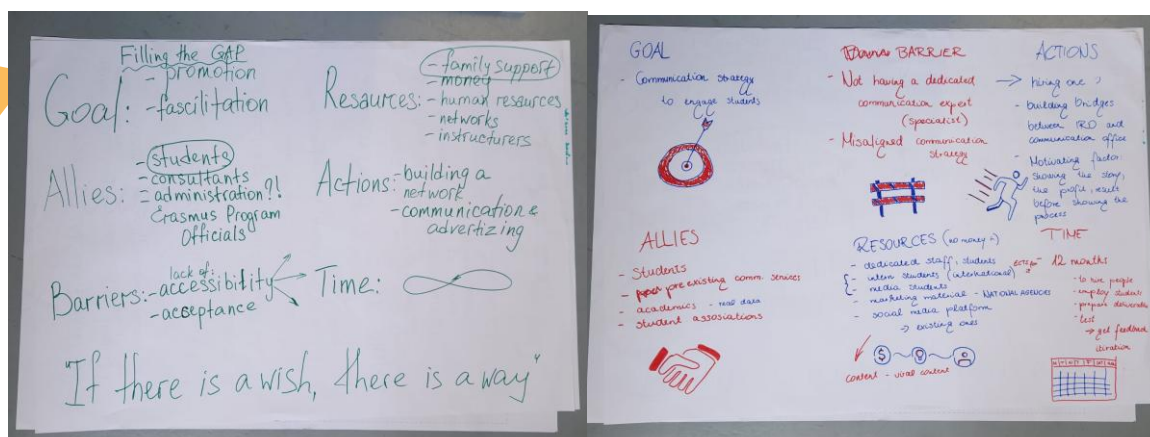 Filling the GAP
Goal: - promotion
- fascilitation
Resaurces: - family support
- money
- human resaurces
- networks
- instructurers
Allies: - students
- consultants
= administration?!
Erasmus Program
Officials
Actions: - building a
network
- communication &
advertizing
Barriers: - lack of:
accessibility
- acceptance
Time:
"If there is a wish, there is a way"
GOAL
- Communication strategy
to engage students
BARRIER
- Not having a dedicated
communication expert
(specialist)
- Misaligned communication
strategy
ACTIONS
→ hiring one ?
- building bridges
between IRO and
communication office
- Motivating factor
showing the story,
the profit, result
before showing the
process
ALLIES
- Students
- pre existing comm. services
- academics - real data
- student assosiations
RESOURCES (no money =)
- dedicated staff, students
- intern students (international)
- media students
- marketing material - NATIONAL AGENCES
- social media platform
→ existing ones
$
content - viral content
TIME
- 12 months
- to hire people
- employ students
- prepare deliverables
- test
→ get feedback
itiration